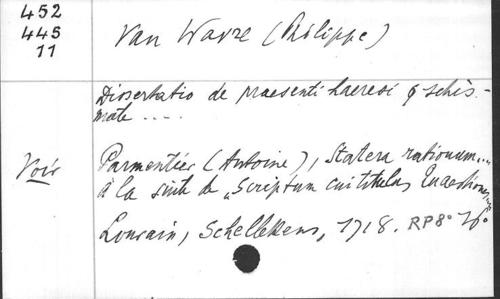 452
445
11
Van Wavre (Philippe)
Dissertatio de praesenti haeresi & schis-
mate ....
Voir Parmentier (Antoine), Statera rationum....
à la suite de "Scriptum cui titulus, Quaestiones
Louvain, Schellekens, 1718. RP8°